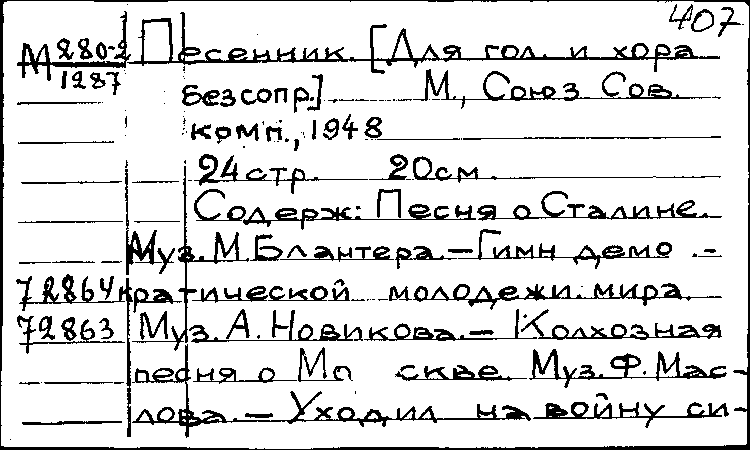 407
М 280-2 Песенник. [Для гол. и хора
1287 без сопр.] М., Союз Сов.
комп., 1948
24 стр. 20 см.
Содерж: Песня о Сталине.
Муз. М. Блантера. — Гимн демо-
72864 кратической молодежи мира.
72863 Муз. А. Новикова. — Колхозная
песня о Мо скве. Муз. Ф. Мас-
лова. — Уходил на войну си-